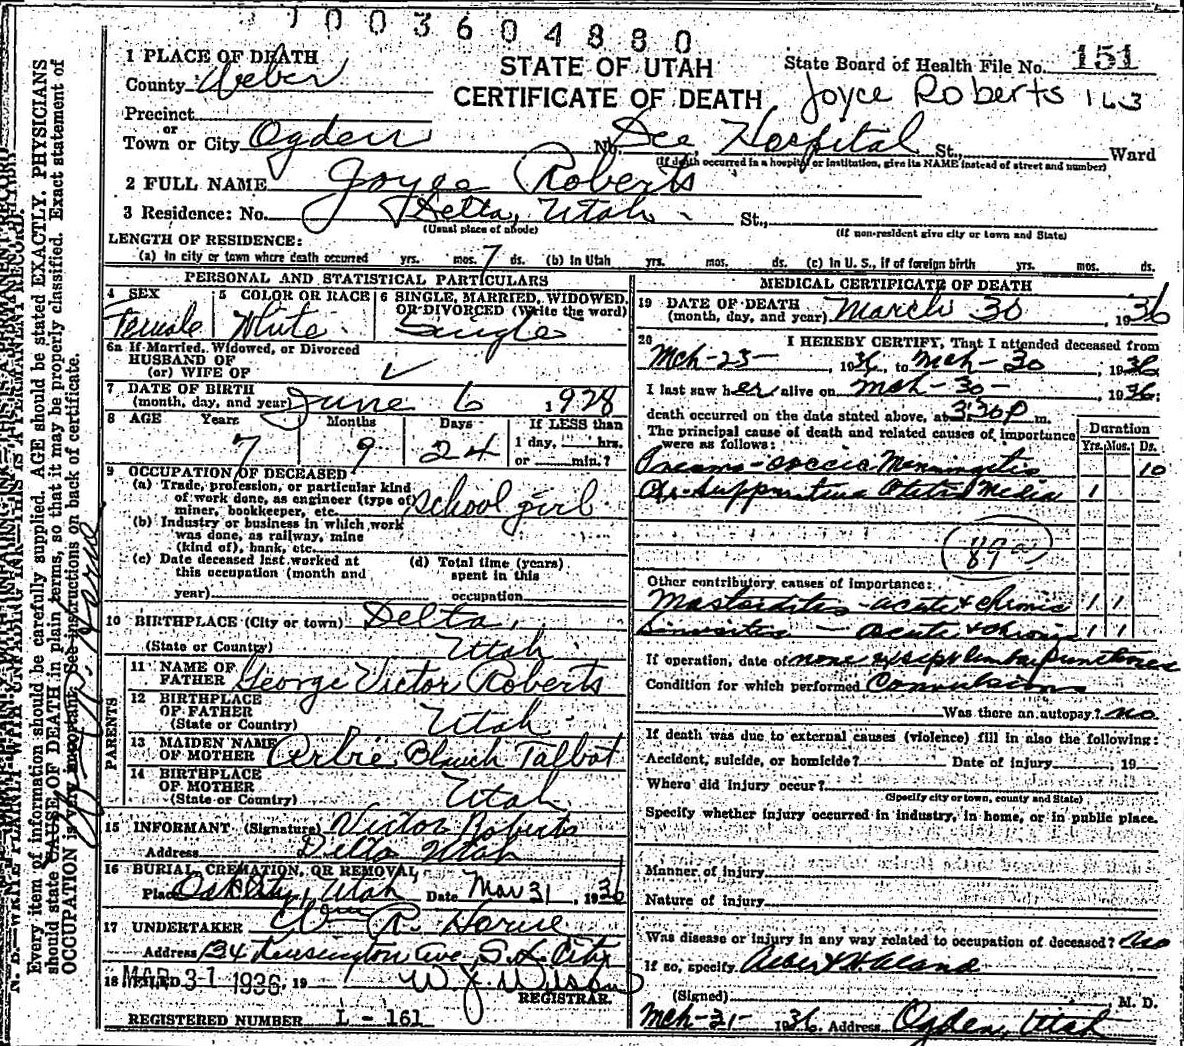 1003604880
1 PLACE OF DEATH
STATE OF UTAH
State Board of Health File No. 151
County Weber
CERTIFICATE OF DEATH
Joyce Roberts 163
Precinct
or
Town or City Ogden No. Dee Hospital St., Ward
(If death occurred in a hospital or institution, give its NAME instead of street and number)
2 FULL NAME Joyce Roberts
3 Residence: No. Delta, Utah St.,
(Usual place of abode) (If non-resident give city or town and State)
LENGTH OF RESIDENCE:
(a) In city or town where death occurred yrs. mos. 7 ds. (b) In Utah yrs. mos. ds. (c) In U. S., if of foreign birth yrs. mos. ds.
PERSONAL AND STATISTICAL PARTICULARS
4 SEX
Female
5 COLOR OR RACE
White
6 SINGLE, MARRIED, WIDOWED,
OR DIVORCED (Write the word)
Single
6a If Married, Widowed, or Divorced
HUSBAND OF
(or) WIFE OF
7 DATE OF BIRTH
(month, day, and year) June 6 1928
8 AGE Years Months Days If LESS than
7 9 24 1 day, hrs.
or min.?
9 OCCUPATION OF DECEASED
(a) Trade, profession, or particular kind
of work done, as engineer (type of)
miner, bookkeeper, etc. School girl
(b) Industry or business in which work
was done, as railway, mine
(kind of), bank, etc.
(c) Date deceased last worked at
this occupation (month and
year)
(d) Total time (years)
spent in this
occupation
10 BIRTHPLACE (City or town) Delta,
(State or Country) Utah
PARENTS
11 NAME OF
FATHER George Victor Roberts
12 BIRTHPLACE
OF FATHER
(State or Country) Utah
13 MAIDEN NAME
OF MOTHER Arbie Blanch Talbot
14 BIRTHPLACE
OF MOTHER
(State or Country) Utah
15 INFORMANT (Signature) Victor Roberts
Address Delta Utah
16 BURIAL, CREMATION, OR REMOVAL,
Place Oak City, Utah Date Mar 31, 1936
17 UNDERTAKER Wm R.
Address 134 Kensington Ave, S. L. City
18 FILED MAR 31 1936, 19
W. J. Wilson
REGISTRAR.
REGISTERED NUMBER L - 161
MEDICAL CERTIFICATE OF DEATH
19 DATE OF DEATH
(month, day, and year) March 30, 1936
20 I HEREBY CERTIFY, That I attended deceased from
Mch-23-, 1936, to Mch-30, 1936
I last saw her alive on Mch-30-, 1936;
death occurred on the date stated above, at 3:30p m.
The principal cause of death and related causes of importance
were as follows:
Duration
Yrs. Mos. Ds.
Pneumo-coccic Meningitis 10
Suppurative Otitis Media 1
89a
Other contributory causes of importance:
Mastoiditis - acute & chronic 1 1
Sinusitis - acute & chronic 1 1
If operation, date of none except lumbar punctures
Condition for which performed Convulsions
Was there an autopsy? no
If death was due to external causes (violence) fill in also the following:
Accident, suicide, or homicide? Date of injury, 19
Where did injury occur?
(Specify city or town, county and State)
Specify whether injury occurred in industry, in home, or in public place.
Manner of injury
Nature of injury
Was disease or injury in any way related to occupation of deceased? no
If so, specify.
(Signed) M. D.
Mch-31- 1936 Address Ogden, Utah
Every item of information should be carefully supplied. AGE should be stated EXACTLY. PHYSICIANS
should state CAUSE OF DEATH in plain terms, so that it may be properly classified. Exact statement of
OCCUPATION is very important. See instructions on back of certificate.